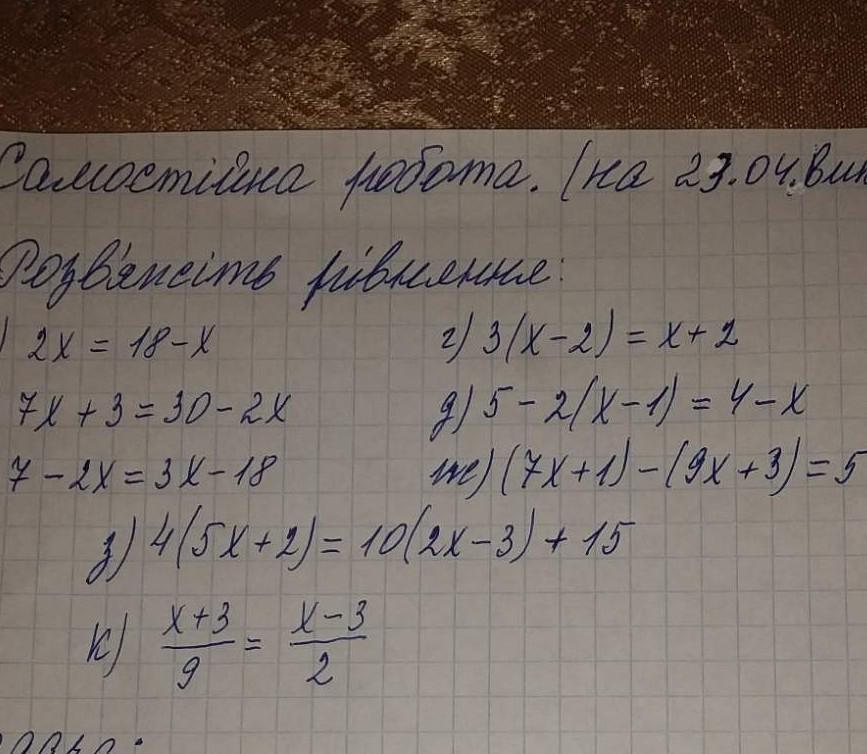 Самостійна робота. (на 23.04. вик
Розв'яжіть рівняння:
) 2x = 18 - x г) 3(x - 2) = x + 2
7x + 3 = 30 - 2x д) 5 - 2(x - 1) = 4 - x
7 - 2x = 3x - 18 ж) (7x + 1) - (9x + 3) = 5
з) 4(5x + 2) = 10(2x - 3) + 15
к) (x + 3)/9 = (x - 3)/2